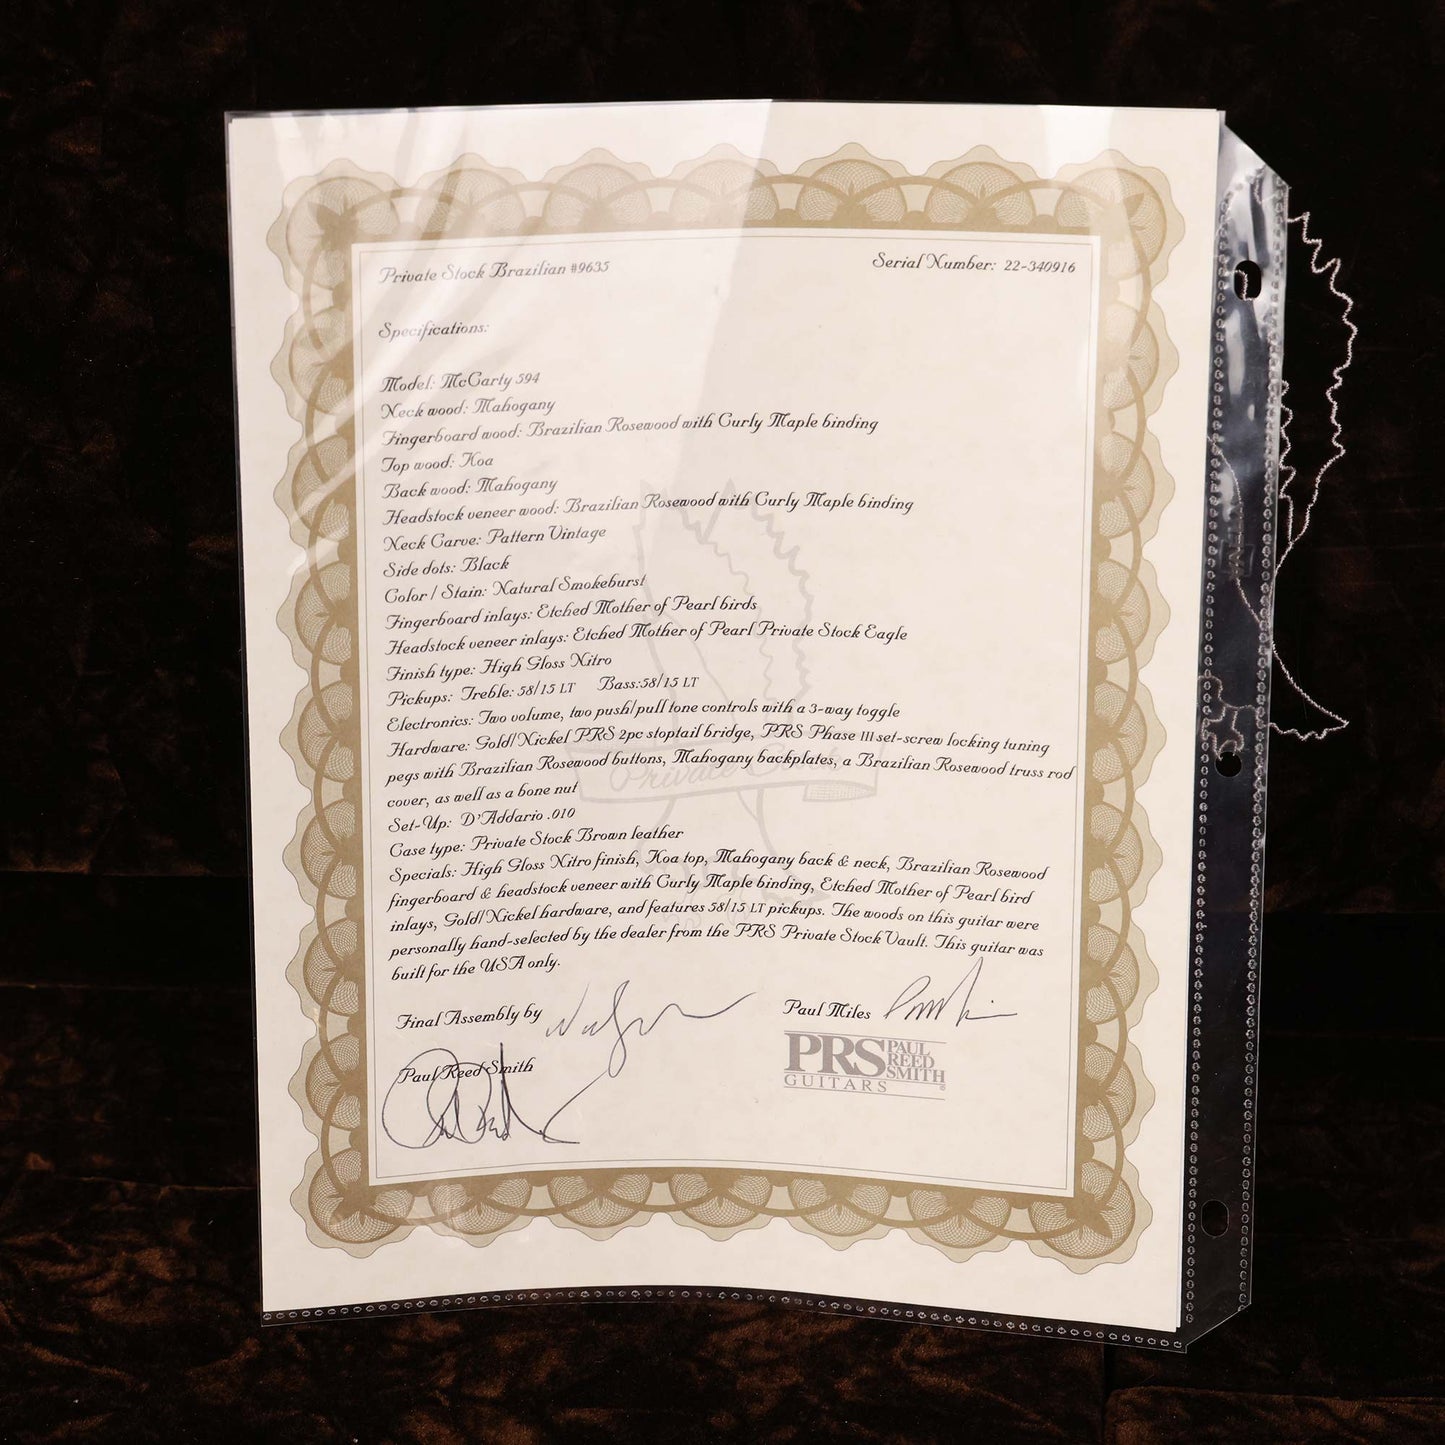 Private Stock Brazilian #9635
Serial Number: 22-340916
Specifications:
Model: McCarty 594
Neck wood: Mahogany
Fingerboard wood: Brazilian Rosewood with Curly Maple binding
Top wood: Koa
Back wood: Mahogany
Headstock veneer wood: Brazilian Rosewood with Curly Maple binding
Neck Carve: Pattern Vintage
Side dots: Black
Color / Stain: Natural Smokeburst
Fingerboard inlays: Etched Mother of Pearl birds
Headstock veneer inlays: Etched Mother of Pearl Private Stock Eagle
Finish type: High Gloss Nitro
Pickups: Treble: 58/15 LT Bass:58/15 LT
Electronics: Two volume, two push/pull tone controls with a 3-way toggle
Hardware: Gold/Nickel PRS 2pc stoptail bridge, PRS Phase III set-screw locking tuning
pegs with Brazilian Rosewood buttons, Mahogany backplates, a Brazilian Rosewood truss rod
cover, as well as a bone nut
Private Stock
Set-Up: D'Addario .010
Case type: Private Stock Brown leather
Specials: High Gloss Nitro finish, Koa top, Mahogany back & neck, Brazilian Rosewood
fingerboard & headstock veneer with Curly Maple binding, Etched Mother of Pearl bird
inlays, Gold/Nickel hardware, and features 58/15 LT pickups. The woods on this guitar were
personally hand-selected by the dealer from the PRS Private Stock Vault. This guitar was
built for the USA only.
Final Assembly by
Paul Miles
Paul Reed Smith
PRS PAUL REED SMITH
GUITARS